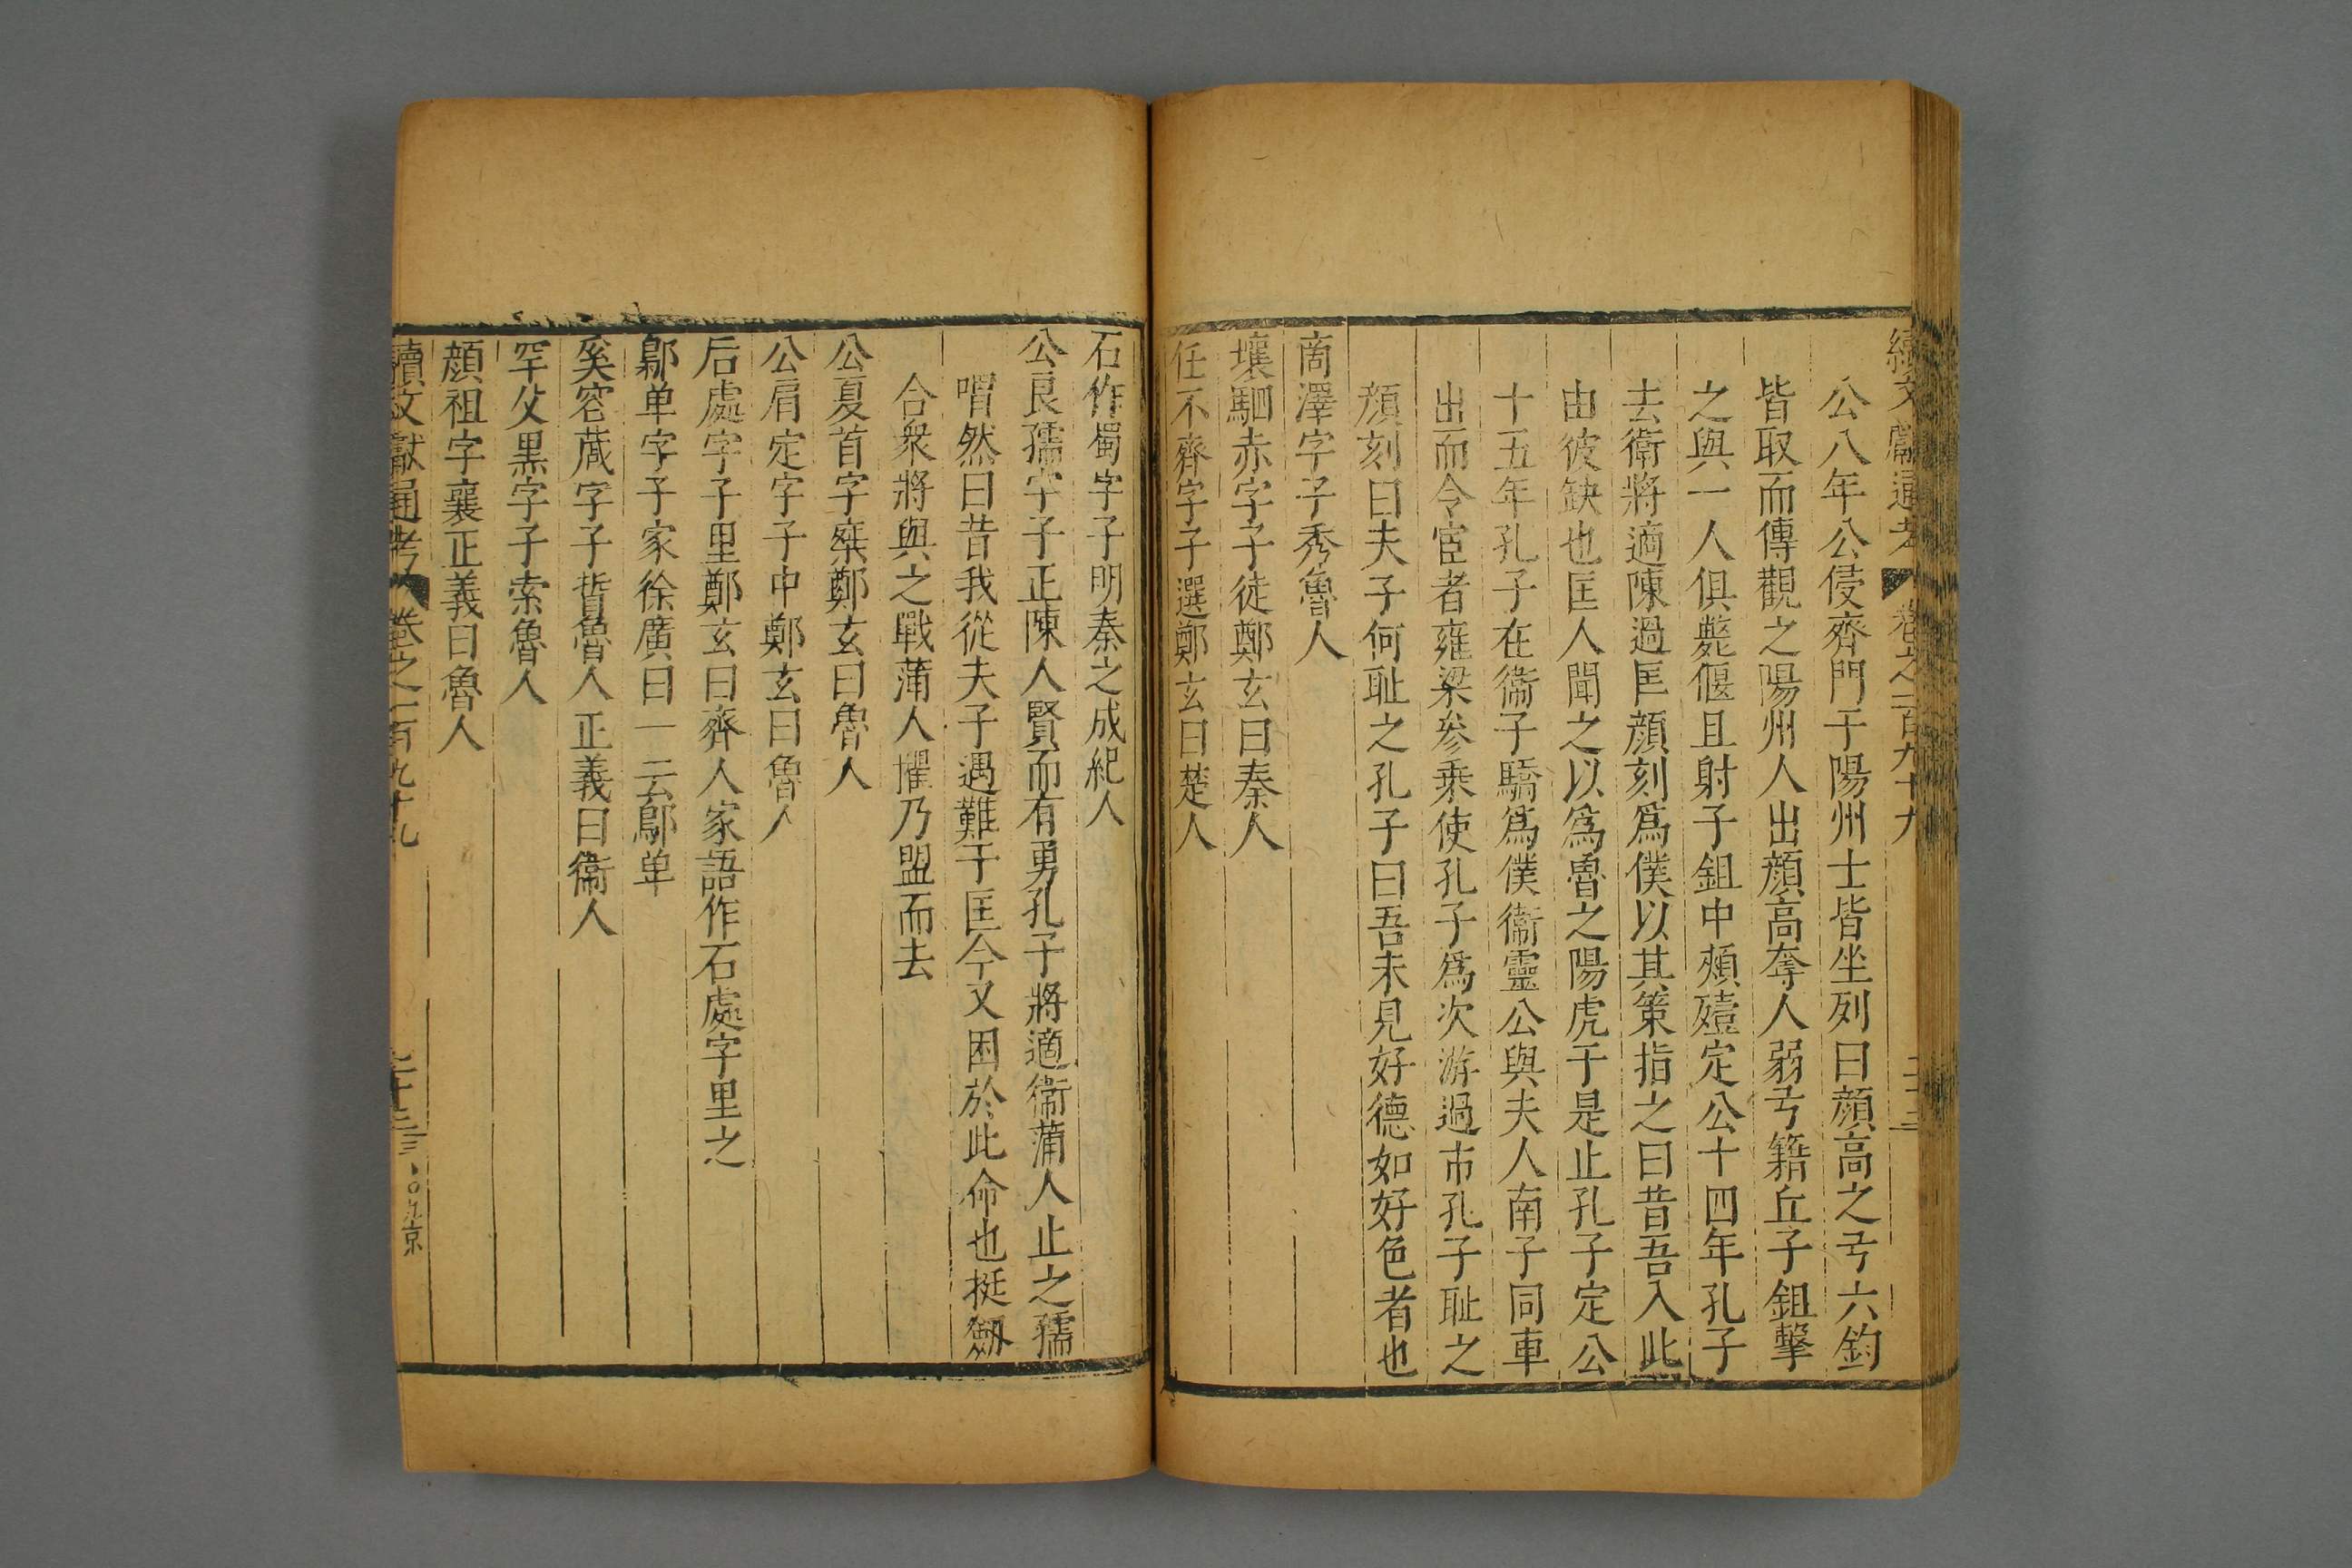 續文獻通考 卷之一百九十九 二十二
公八年公侵齊門于陽州士皆坐列曰顔高之弓六鈞
皆取而傳觀之陽州人出顔高奪人弱弓籍丘子鉏擊
之與一人俱斃偃且射子鉏中頰殪定公十四年孔子
去衛將適陳過匡顔刻爲僕以其策指之曰昔吾入此
由彼缺也匡人聞之以爲魯之陽虎于是止孔子定公
十五年孔子在衞子驕爲僕衞靈公與夫人南子同車
出而令宦者雍梁參乗使孔子爲次游過市孔子耻之
顔刻曰夫子何耻之孔子曰吾未見好德如好色者也
商澤字子秀魯人
壤駟赤字子徒鄭玄曰秦人
任不齊字子選鄭玄曰楚人
石作蜀字子明秦之成紀人
公良孺字子正陳人賢而有勇孔子將適衞蒲人止之孺
喟然曰昔我從夫子遇難于匡今又困於此命也挺劔
合衆將與之戰蒲人懼乃盟而去
公夏首字椉鄭玄曰魯人
公肩定字子中鄭玄曰魯人
后處字子里鄭玄曰齊人家語作石處字里之
鄡单字子家徐廣曰一云鄔单
奚容蒧字子晳魯人正義曰衞人
罕父黒字子索魯人
顔祖字襄正義曰魯人
續文獻通考 卷之一百九十九